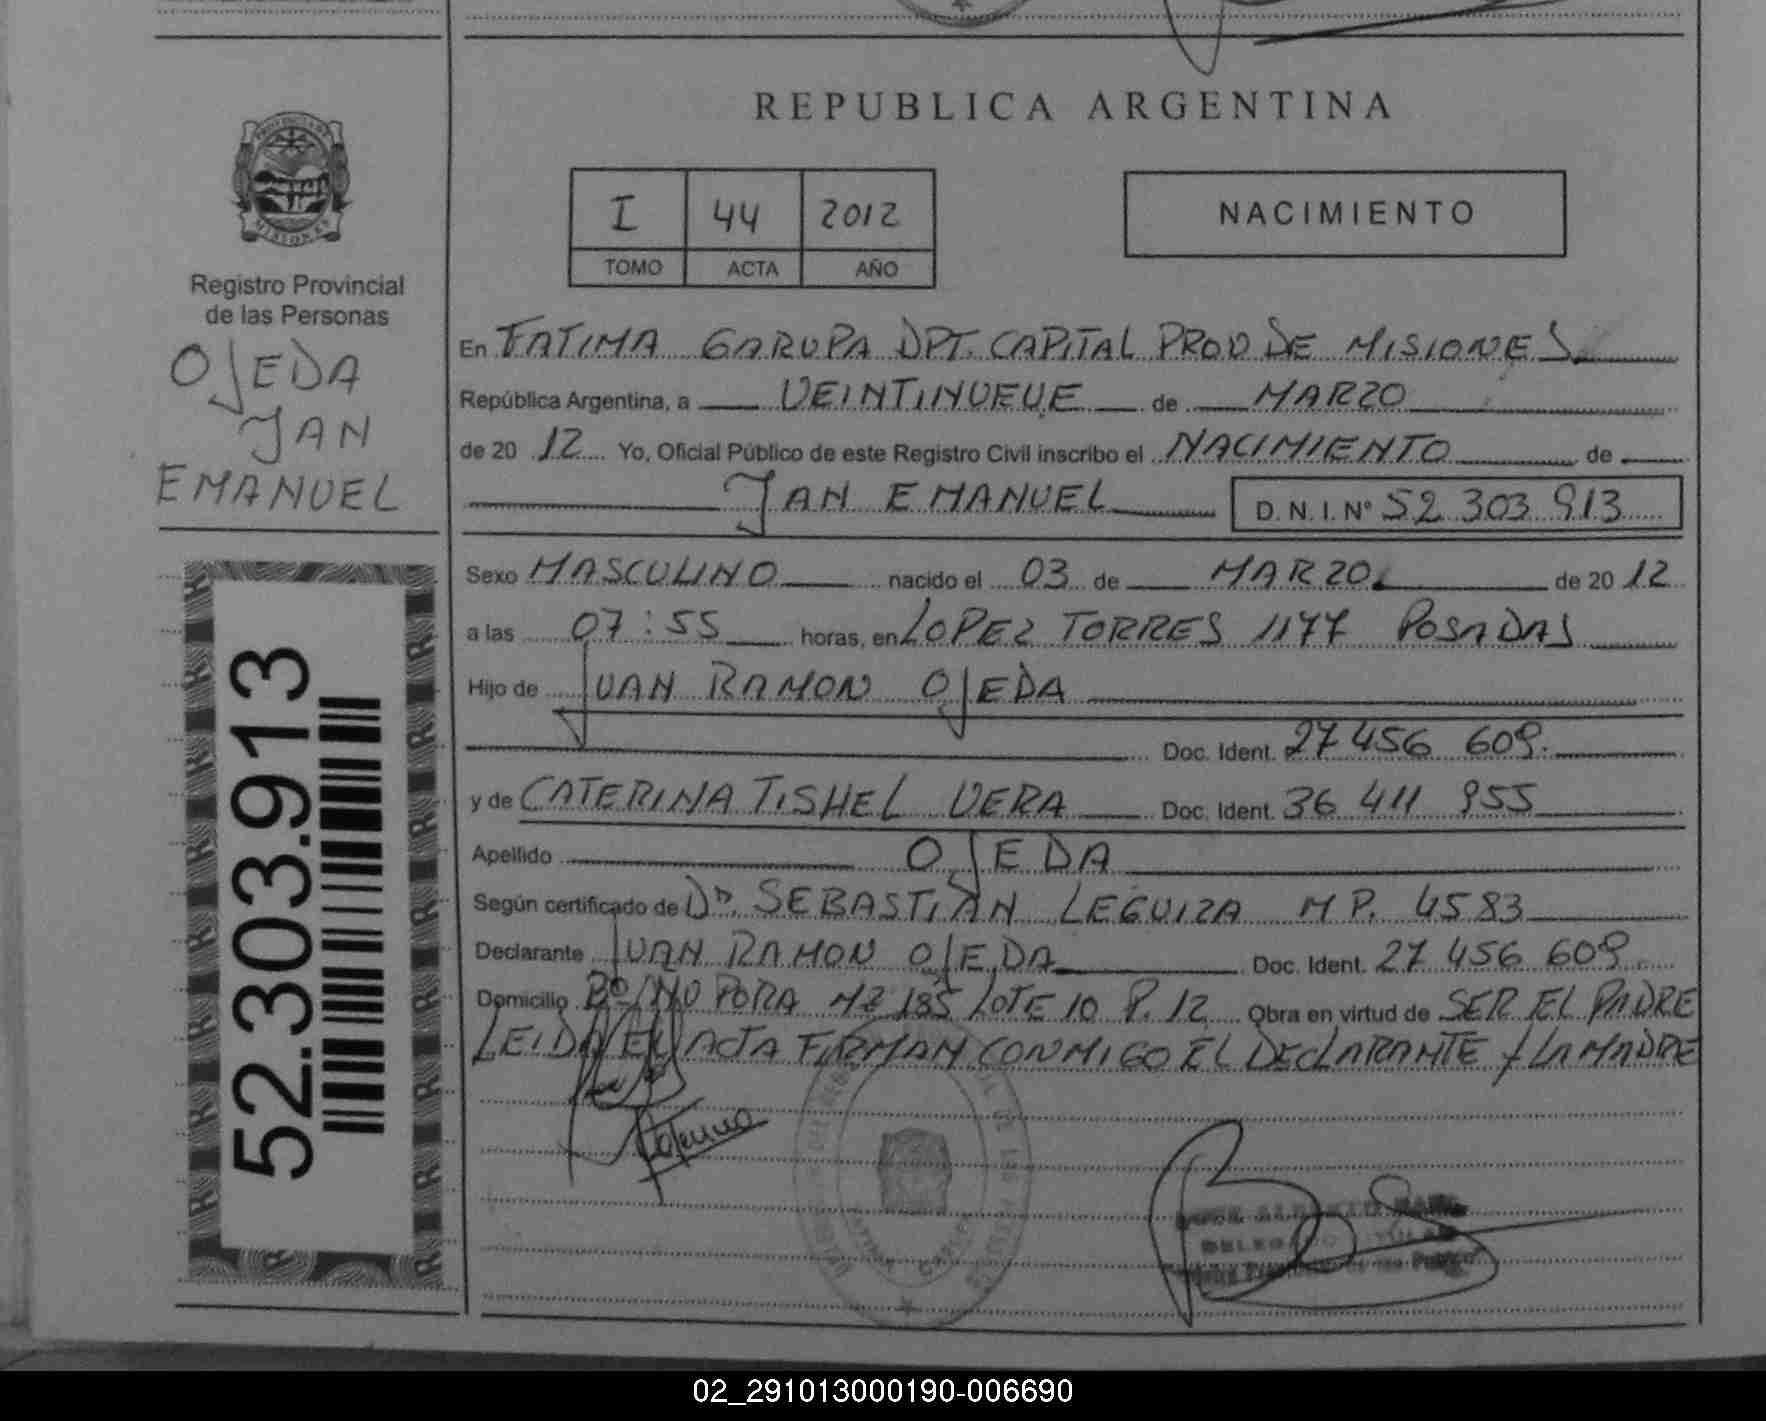 REPUBLICA ARGENTINA
PROVINCIA DE
MISIONES
Registro Provincial
de las Personas
OJEDA
JAN
EMANUEL
I 44 2012
TOMO ACTA AÑO
NACIMIENTO
En FATIMA GARUPA DPT. CAPITAL PROV DE MISIONES
República Argentina, a VEINTINUEVE de MARZO
de 20 12 Yo, Oficial Público de este Registro Civil inscribo el NACIMIENTO de
JAN EMANUEL D.N.I. Nº 52 303 913
Sexo MASCULINO nacido el 03 de MARZO de 20 12
a las 07:55 horas, en LOPEZ TORRES 1177 POSADAS
Hijo de JUAN RAMON OJEDA
Doc. Ident. 27 456 609
y de CATERINA TISHEL VERA Doc. Ident. 36 411 955
Apellido OJEDA
Según certificado de Dr. SEBASTIAN LEGUIZA M P. 4583
Declarante JUAN RAMON OJEDA Doc. Ident. 27 456 609
Domicilio Bº ÑU PORA MZ 185 LOTE 10 P. 12 Obra en virtud de SER EL PADRE
LEIDA EL ACTA FIRMAN CONMIGO EL DECLARANTE Y LA MADRE
52.303.913
02_291013000190-006690